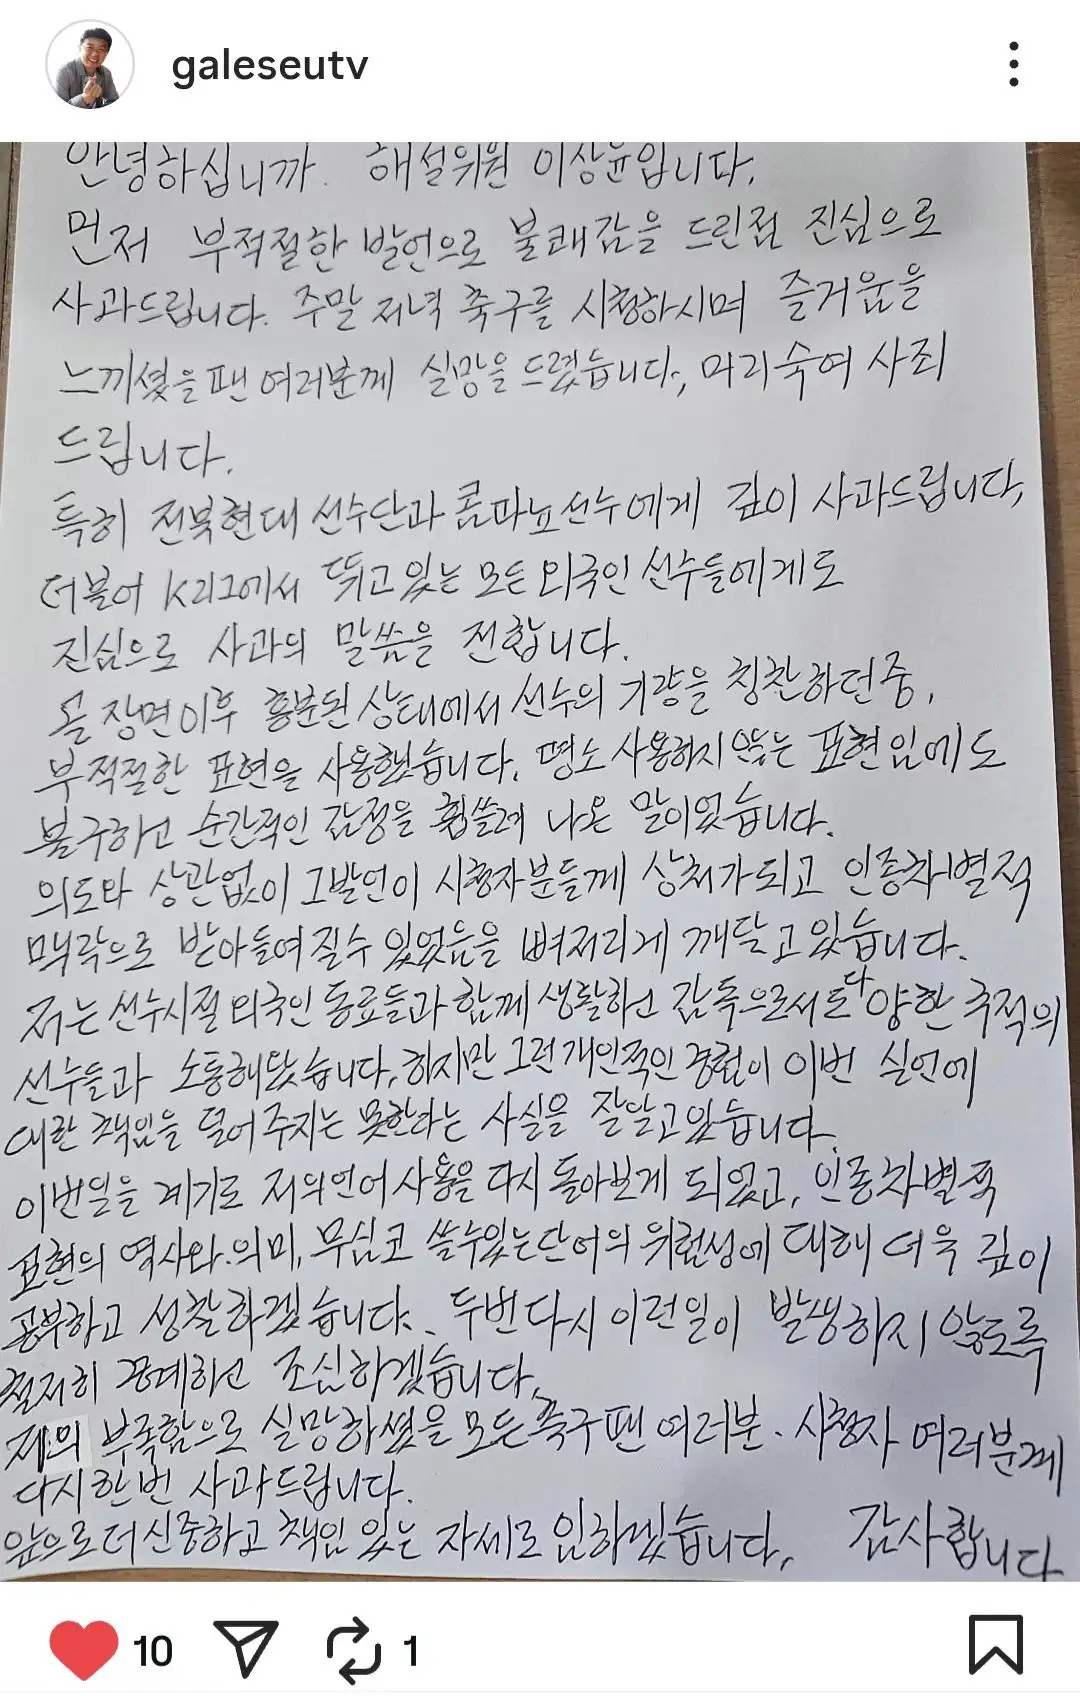 galeseutv
안녕하십니까. 해설위원 이상윤입니다.
먼저 부적절한 발언으로 불쾌감을 드린점 진심으로
사과드립니다. 주말 저녁 축구를 시청하시며 즐거움을
느끼셨을 팬 여러분께 실망을 드렸습니다, 머리숙여 사죄
드립니다.
특히 전북현대 선수단과 콤파뇨선수에게 깊이 사과드립니다,
더불어 K리그에서 뛰고있는 모든 외국인 선수들에게도
진심으로 사과의 말씀을 전합니다.
골 장면이후 흥분된 상태에서 선수의 기량을 칭찬하던중,
부적절한 표현을 사용했습니다. 평소 사용하지 않는 표현임에도
불구하고 순간적인 감정을 휩쓸려 나온 말이었습니다.
의도와 상관없이 그발언이 시청자분들께 상처가되고 인종차별적
맥락으로 받아들여질수 있었음을 뼈저리게 깨닫고있습니다.
저는 선수시절 외국인 동료들과 함께 생활하고 감독으로서도 다양한 국적의
선수들과 소통해왔습니다. 하지만 그런 개인적인 경험이 이번 실언에
대한 책임을 덜어주지는 못한다는 사실을 잘알고있습니다.
이번일을 계기로 저의언어사용을 다시 돌아보게 되었고, 인종차별적
표현의 역사와 의미, 무심코 쓸수있는단어의 위험성에 대해 더욱 깊이
공부하고 성찰하겠습니다. 두번다시 이런일이 발생하지 않도록
철저히 경계하고 조심하겠습니다.
저의 부족함으로 실망하셨을 모든축구팬 여러분. 시청자 여러분께
다시한번 사과드립니다.
앞으로더신중하고 책임 있는 자세로 임하겠습니다, 감사합니다
10
1